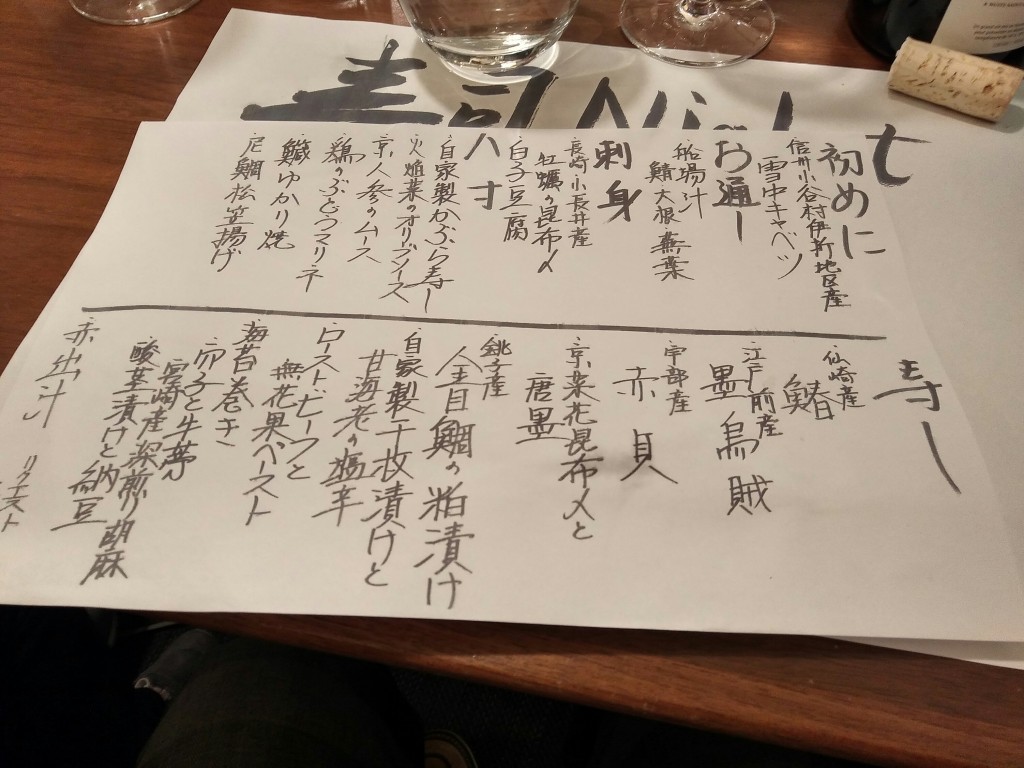 寿司
初めに
信州小谷村伊折地区産
雪中キャベツ
お通し
船場汁
鯖大根蕪葉
刺身
長崎小長井産
牡蠣の昆布〆
白子豆腐
八寸
自家製かぶら寿し
火焔菜のオリヅノイズ
京人参のムース
鶏のぶどうマリネ
鰆ゆかり焼
尼鯛松笠揚げ
寿し
仙崎産
鰆
江戸前産
墨烏賊
宇部産
赤貝
京菜花昆布〆と
唐墨
銚子産
金目鯛の粕漬け
自家製千枚漬けと
甘海老の塩辛
ローストビーフと
無花果ペースト
海苔巻き
卵子と牛蒡
宮崎産深煎り胡麻
酸茎漬けと納豆
赤出汁
リクエスト